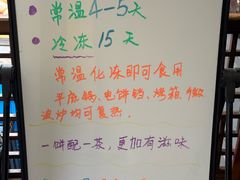 常温4-5天
冷冻15天
常温化冻即可食用
平底锅、电饼铛、烤箱、微
波炉均可复热。
一饼配一茶，更加有滋味